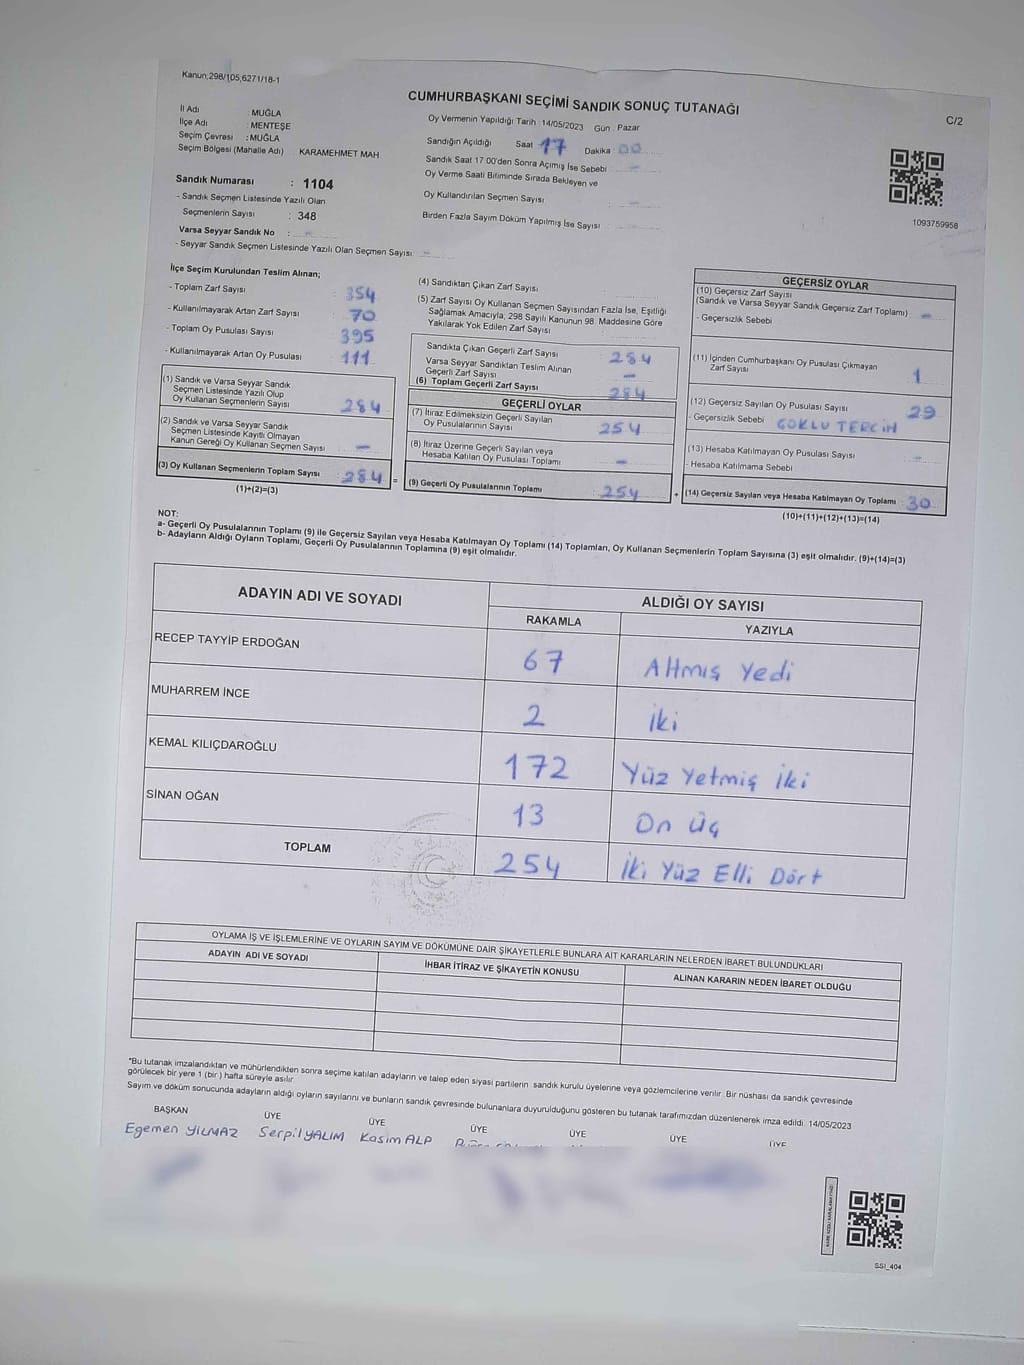 Kanun;298/105;6271/18-1
CUMHURBAŞKANI SEÇİMİ SANDIK SONUÇ TUTANAĞI
C/2
İl Adı : MUĞLA
İlçe Adı : MENTEŞE
Seçim Çevresi : MUĞLA
Seçim Bölgesi (Mahalle Adı) KARAMEHMET MAH
Sandık Numarası : 1104
- Sandık Seçmen Listesinde Yazılı Olan
Seçmenlerin Sayısı : 348
Varsa Seyyar Sandık No : -
- Seyyar Sandık Seçmen Listesinde Yazılı Olan Seçmen Sayısı -
Oy Vermenin Yapıldığı Tarih : 14/05/2023 Gün : Pazar
Sandığın Açıldığı Saat 17 Dakika : 00
Sandık Saat 17:00'den Sonra Açılmış İse Sebebi : -
Oy Verme Saati Bitiminde Sırada Bekleyen ve
Oy Kullandırılan Seçmen Sayısı : -
Birden Fazla Sayım Döküm Yapılmış İse Sayısı : -
1093759958
İlçe Seçim Kurulundan Teslim Alınan;
- Toplam Zarf Sayısı : 354
- Kullanılmayarak Artan Zarf Sayısı : 70
- Toplam Oy Pusulası Sayısı : 395
- Kullanılmayarak Artan Oy Pusulası : 111
(1) Sandık ve Varsa Seyyar Sandık
Seçmen Listesinde Yazılı Olup
Oy Kullanan Seçmenlerin Sayısı : 284
(2) Sandık ve Varsa Seyyar Sandık
Seçmen Listesinde Kayıtlı Olmayan
Kanun Gereği Oy Kullanan Seçmen Sayısı : -
(3) Oy Kullanan Seçmenlerin Toplam Sayısı : 284 =
(1)+(2)=(3)
(4) Sandıktan Çıkan Zarf Sayısı :
(5) Zarf Sayısı Oy Kullanan Seçmen Sayısından Fazla İse, Eşitliği
Sağlamak Amacıyla; 298 Sayılı Kanunun 98. Maddesine Göre
Yakılarak Yok Edilen Zarf Sayısı :
Sandıkta Çıkan Geçerli Zarf Sayısı : 284
Varsa Seyyar Sandıktan Teslim Alınan
Geçerli Zarf Sayısı : -
(6) Toplam Geçerli Zarf Sayısı : 284
GEÇERLİ OYLAR
(7) İtiraz Edilmeksizin Geçerli Sayılan
Oy Pusulalarının Sayısı : 254
(8) İtiraz Üzerine Geçerli Sayılan veya
Hesaba Katılan Oy Pusulası Toplamı : -
(9) Geçerli Oy Pusulalarının Toplamı : 254 +
GEÇERSİZ OYLAR
(10) Geçersiz Zarf Sayısı
(Sandık ve Varsa Seyyar Sandık Geçersiz Zarf Toplamı) : -
- Geçersizlik Sebebi
(11) İçinden Cumhurbaşkanı Oy Pusulası Çıkmayan
Zarf Sayısı : 1
(12) Geçersiz Sayılan Oy Pusulası Sayısı : 29
- Geçersizlik Sebebi : ÇOKLU TERCİH
(13) Hesaba Katılmayan Oy Pusulası Sayısı : -
- Hesaba Katılmama Sebebi
(14) Geçersiz Sayılan veya Hesaba Katılmayan Oy Toplamı : 30
(10)+(11)+(12)+(13)=(14)
NOT:
a- Geçerli Oy Pusulalarının Toplamı (9) ile Geçersiz Sayılan veya Hesaba Katılmayan Oy Toplamı (14) Toplamları, Oy Kullanan Seçmenlerin Toplam Sayısına (3) eşit olmalıdır. (9)+(14)=(3)
b- Adayların Aldığı Oyların Toplamı, Geçerli Oy Pusulalarının Toplamına (9) eşit olmalıdır.
ADAYIN ADI VE SOYADI ALDIĞI OY SAYISI
RAKAMLA YAZIYLA
RECEP TAYYİP ERDOĞAN 67 Altmış Yedi
MUHARREM İNCE 2 İki
KEMAL KILIÇDAROĞLU 172 Yüz Yetmiş İki
SİNAN OĞAN 13 On Üç
TOPLAM 254 İki Yüz Elli Dört
OYLAMA İŞ VE İŞLEMLERİNE VE OYLARIN SAYIM VE DÖKÜMÜNE DAİR ŞİKAYETLERLE BUNLARA AİT KARARLARIN NELERDEN İBARET BULUNDUKLARI
ADAYIN ADI VE SOYADI İHBAR İTİRAZ VE ŞİKAYETİN KONUSU ALINAN KARARIN NEDEN İBARET OLDUĞU
*Bu tutanak imzalandıktan ve mühürlendikten sonra seçime katılan adayların ve talep eden siyasi partilerin sandık kurulu üyelerine veya gözlemcilerine verilir. Bir nüshası da sandık çevresinde
görülecek bir yere 1 (bir) hafta süreyle asılır.
Sayım ve döküm sonucunda adayların aldığı oyların sayılarını ve bunların sandık çevresinde bulunanlara duyurulduğunu gösteren bu tutanak tarafımızdan düzenlenerek imza edildi. 14/05/2023
BAŞKAN ÜYE ÜYE ÜYE ÜYE ÜYE ÜYE
Egemen YILMAZ Serpil YALIM Kasım ALP
SSI_404